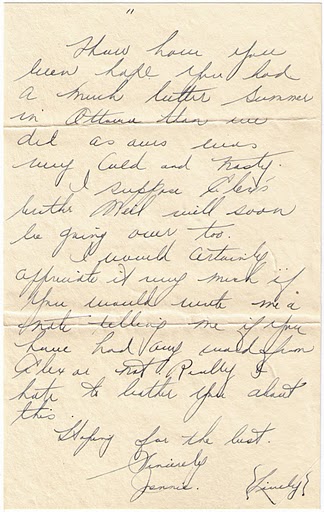 "
How have you
been hope you had
a much better summer
in Ottawa than we
did as ours was
very Cold and Nasty.
I suppose Alex's
brother Neil will soon
be going over too.
I would certainly
appreciate it very much if
you would write me a
note telling me if you
have had any word from
Alex or not. Really I
hate to bother you about
this.
Hoping for the best.
Sincerely
Jennie. {Lively}